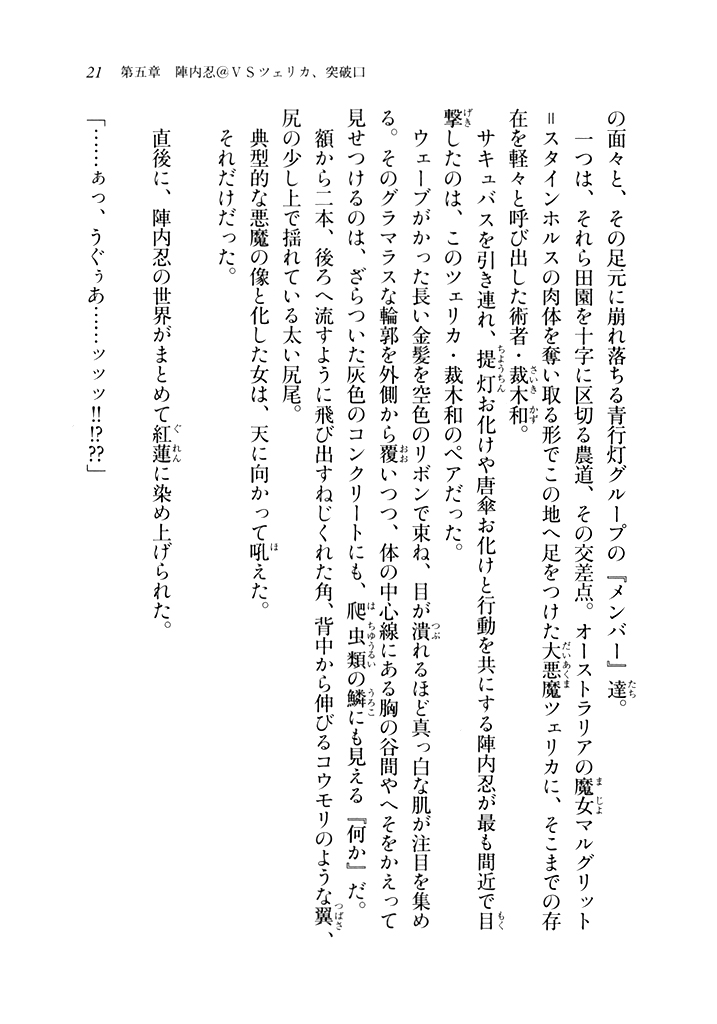 21　第五章　陣内忍＠ＶＳツェリカ、突破口
の面々と、その足元に崩れ落ちる青行灯グループの『メンバー』達。
　一つは、それら田園を十字に区切る農道、その交差点。オーストラリアの魔女マルグリット
＝スタインホルスの肉体を奪い取る形でこの地へ足をつけた大悪魔ツェリカに、そこまでの存
在を軽々と呼び出した術者・裁木和。
　サキュバスを引き連れ、提灯お化けや唐傘お化けと行動を共にする陣内忍が最も間近で目
撃したのは、このツェリカ・裁木和のペアだった。
　ウェーブがかった長い金髪を空色のリボンで束ね、目が潰れるほど真っ白な肌が注目を集め
る。そのグラマラスな輪郭を外側から覆いつつ、体の中心線にある胸の谷間やへそをかえって
見せつけるのは、ざらついた灰色のコンクリートにも、爬虫類の鱗にも見える『何か』だ。
　額から二本、後ろへ流すように飛び出すねじくれた角、背中から伸びるコウモリのような翼、
尻の少し上で揺れている太い尻尾。
　典型的な悪魔の像と化した女は、天に向かって吼えた。
　それだけだった。
　直後に、陣内忍の世界がまとめて紅蓮に染め上げられた。
「……ぁっ、うぐぅあ……ッッッ!!⁉??」